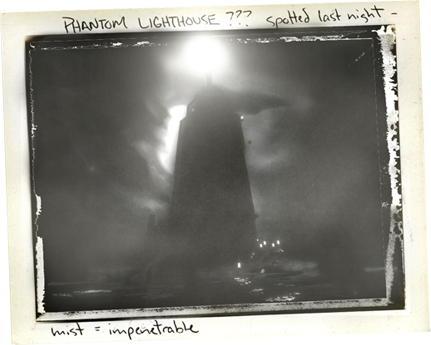 PHANTOM LIGHTHOUSE ??? spotted last night -
mist = impenetrable